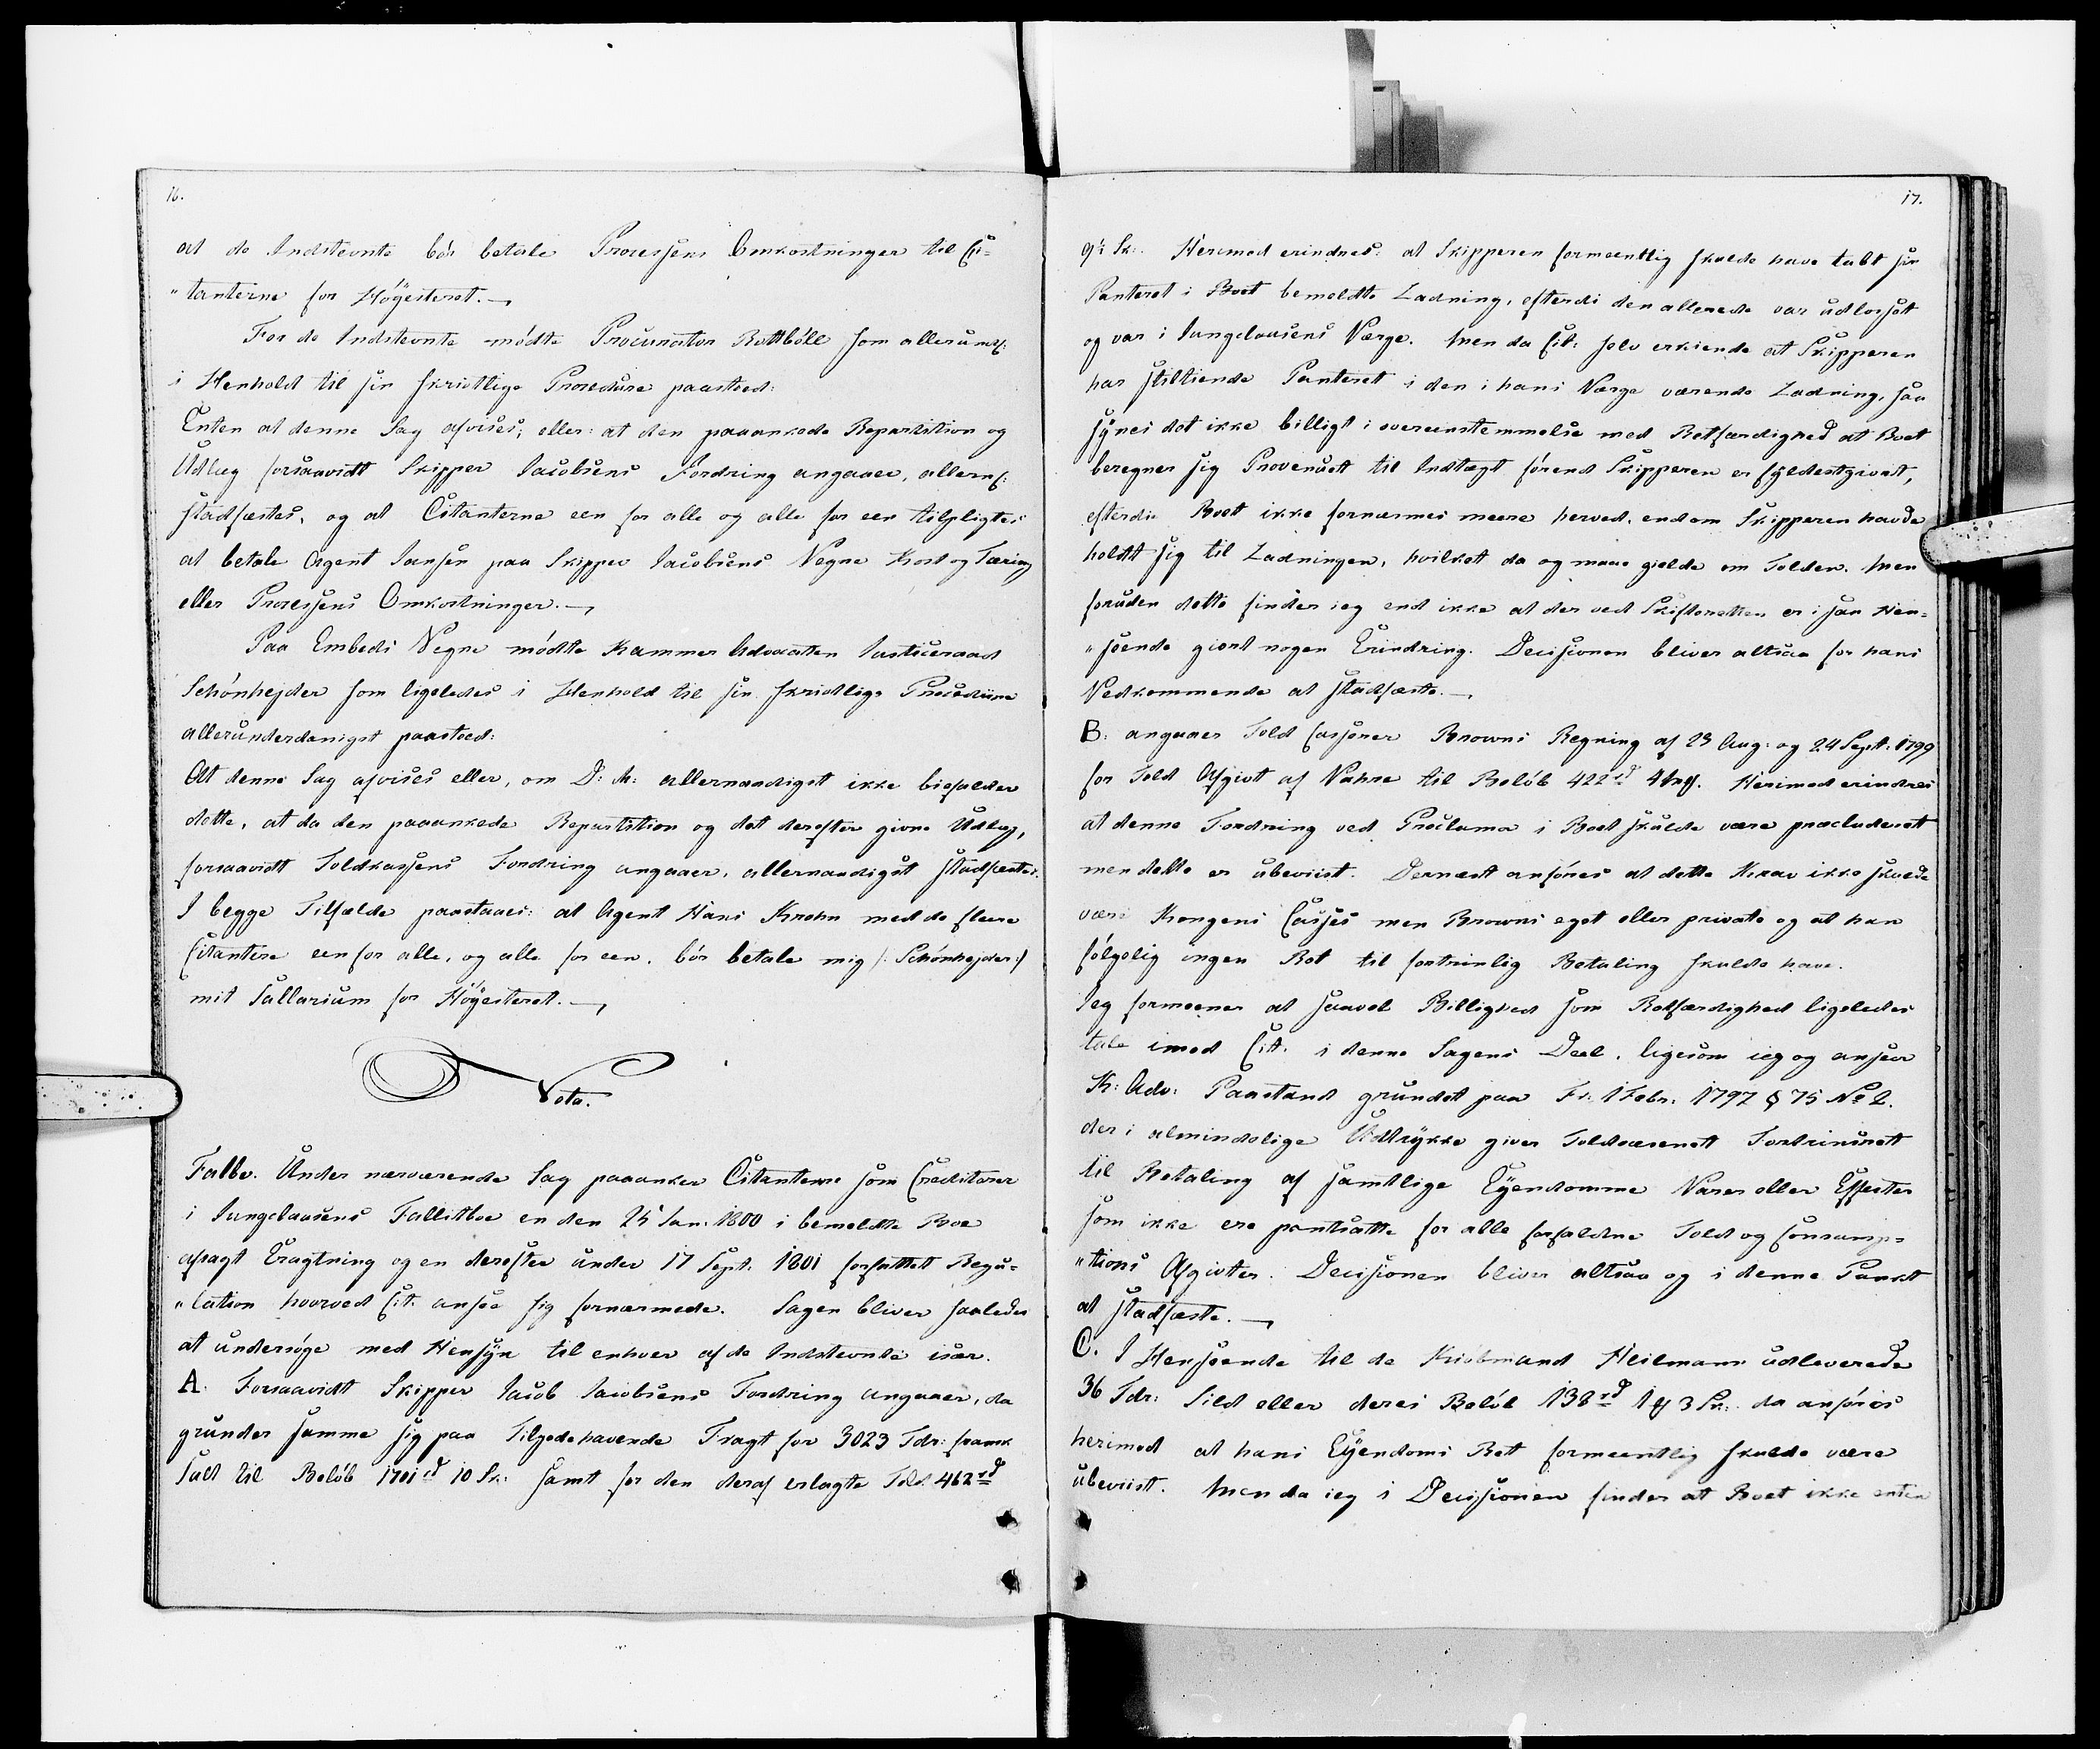 16.
at de Indstevnte bör betale Processens Omkostninger til Ci-
"tanterne for Höyesteret.
For de Indstevnte mödte Procurator Rottböll som allerund:
i Henhold til sin skriftlige Procedure paastoed:
Enten at denne Sag afvises; eller: at den paaankede Repartition og
Udlæg forsaavidt Skipper Iacobsens Fordring angaaer, allern:
stadfæstes, og at Citanterne een for alle og alle for een tilpligtes
at betale Agent Iansen paa Skipper Iacobsens Vegne Kost og Tæring
eller Processens Omkostninger.
Paa Embeds Vegne mödte Kammer Advocaten Iusticeraad
Schönhejder som ligeledes i Henhold til sin skriftlige Procedure
allerunderdanigst paastoed:
At denne Sag afvises eller, om D: M: allernaadigst ikke biefalder
dette, at da den paaankede Repartition og det derefter givne Udlæg,
forsaavidt Toldkassens Fordring angaaer, allernaadigst stadfæstes.
I begge Tilfælde paastaaes: at Agent Hans Krohn med de fleere
Citantere een for alle, og alle for een, bör betale mig /: Schönhejder:/
mit Sallarium for Höyesteret.
Vota.
Falbe. Under nærværende Sag paaanker Citanterne som Creditorer
i Iungclausens Fallitboe en den 25 Ian: 1800 i bemeldte Boe
afsagt Eragtning og en derefter under 17 Sept. 1801 forfattet Regu-
"lation hvorved Cit. ansee sig fornærmede. Sagen bliver saaledes
at undersöge med Hensÿn til enhver af de Indstevnte især.
A. Forsaavidt Skipper Iacob Iacobsens Fordring angaaer, da
grunder samme sig paa Tilgodehavende Fragt for 3023 Tdr: fransk
Salt til Belöb 1701 rd 10 Sk: samt for den deraf erlagte Told 462 rd
17.
9½ Sk: Herimod erindres: at Skipperen formeentlig skulde have tabt sin
Panteret i Boet bemeldte Ladning, efterdi den allerede var udlosset
og var i Iungclausens Værge. Men da Cit: selv erkiende at Skipperen
har stiltiende Panteret i den i hans Værge værende Ladning, saa
sÿnes det ikke billigt i overeenstemmelse med Retfærdighed at Boet
beregner sig Provenuet til Indtægt förend Skipperen er fÿldestgiort,
efterdi Boet ikke fornærmes meere herved, end om Skipperen havde
holdt sig til Ladningen, hvilket da og maae gielde om Tolden. Men
foruden dette finder ieg end ikke at der ved Skifteretten er i saa Hen-
"seende giort nogen Erindring. Decisionen bliver altsaa for hans
Vedkommende at stadfæste.
B. angaaer Told Casserer Browns Regning af 23 Aug: og 24 Sept: 1799
for Told Afgivt af Vahre til Belöb 422 rd 4 mk. Herimod erindres
at denne Fordring ved Proclama i Boet skulde være præcluderet
men dette er ubeviist. Dernæst anföres at dette Krav ikke skulde
være Kongens Casses men Browns eget eller private og at han
fölgelig ingen Ret til fortrinlig Betaling skulde have.
Ieg formeener at saavel Billighed som Retfærdighed ligeledes
tale imod Cit. i denne Sagens Deel, ligesom ieg og anseer
K: Adv: Paastand grundet paa Fr. 1 Febr. 1797 § 75 No 2.
der i almindelige Udtrÿkke giver Toldvæsenet Fortrinsret
til Betaling af samtlige Eÿendomme Varer eller Effecter
som ikke ere pantsatte for alle forfaldne Told og Consump-
"tions Afgivter. Decisionen bliver altsaa og i denne Punkt
at stadfæste.
C. I Henseende til de Kiöbmand Heilmann udleverede
36 Tdr: Sild eller deres Belöb 138 rd 1 mk 3 Sk: da anföres
herimod at hans Eÿendoms Ret formeentlig skulde være
ubeviist. Men da ieg i Decisionen finder at Boet ikke enten